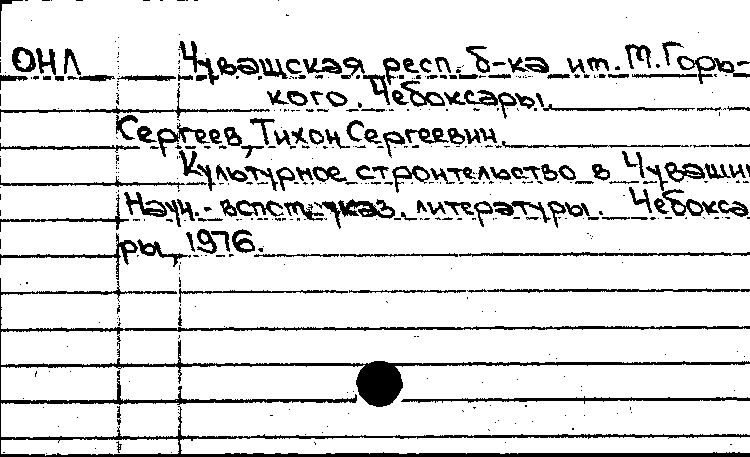 ОНЛ Чувашская респ. б-ка им. М. Горь-
кого. Чебоксары.
Сергеев, Тихон Сергеевич.
Культурное строительство в Чувашии
Науч.- вспом. указ. литературы. Чебокса
ры, 1976.